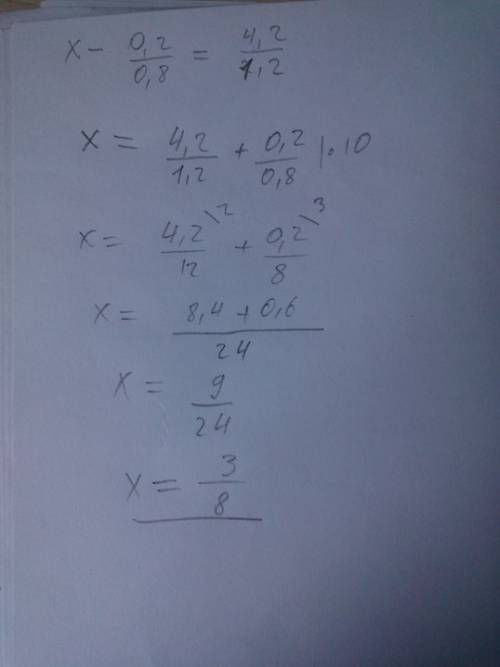 x - 0,2/0,8 = 4,2/1,2
x = 4,2/1,2 + 0,2/0,8 |·10
x = 4,2\2/12 + 0,2\3/8
x = 8,4+0,6/24
x = 9/24
x = 3/8